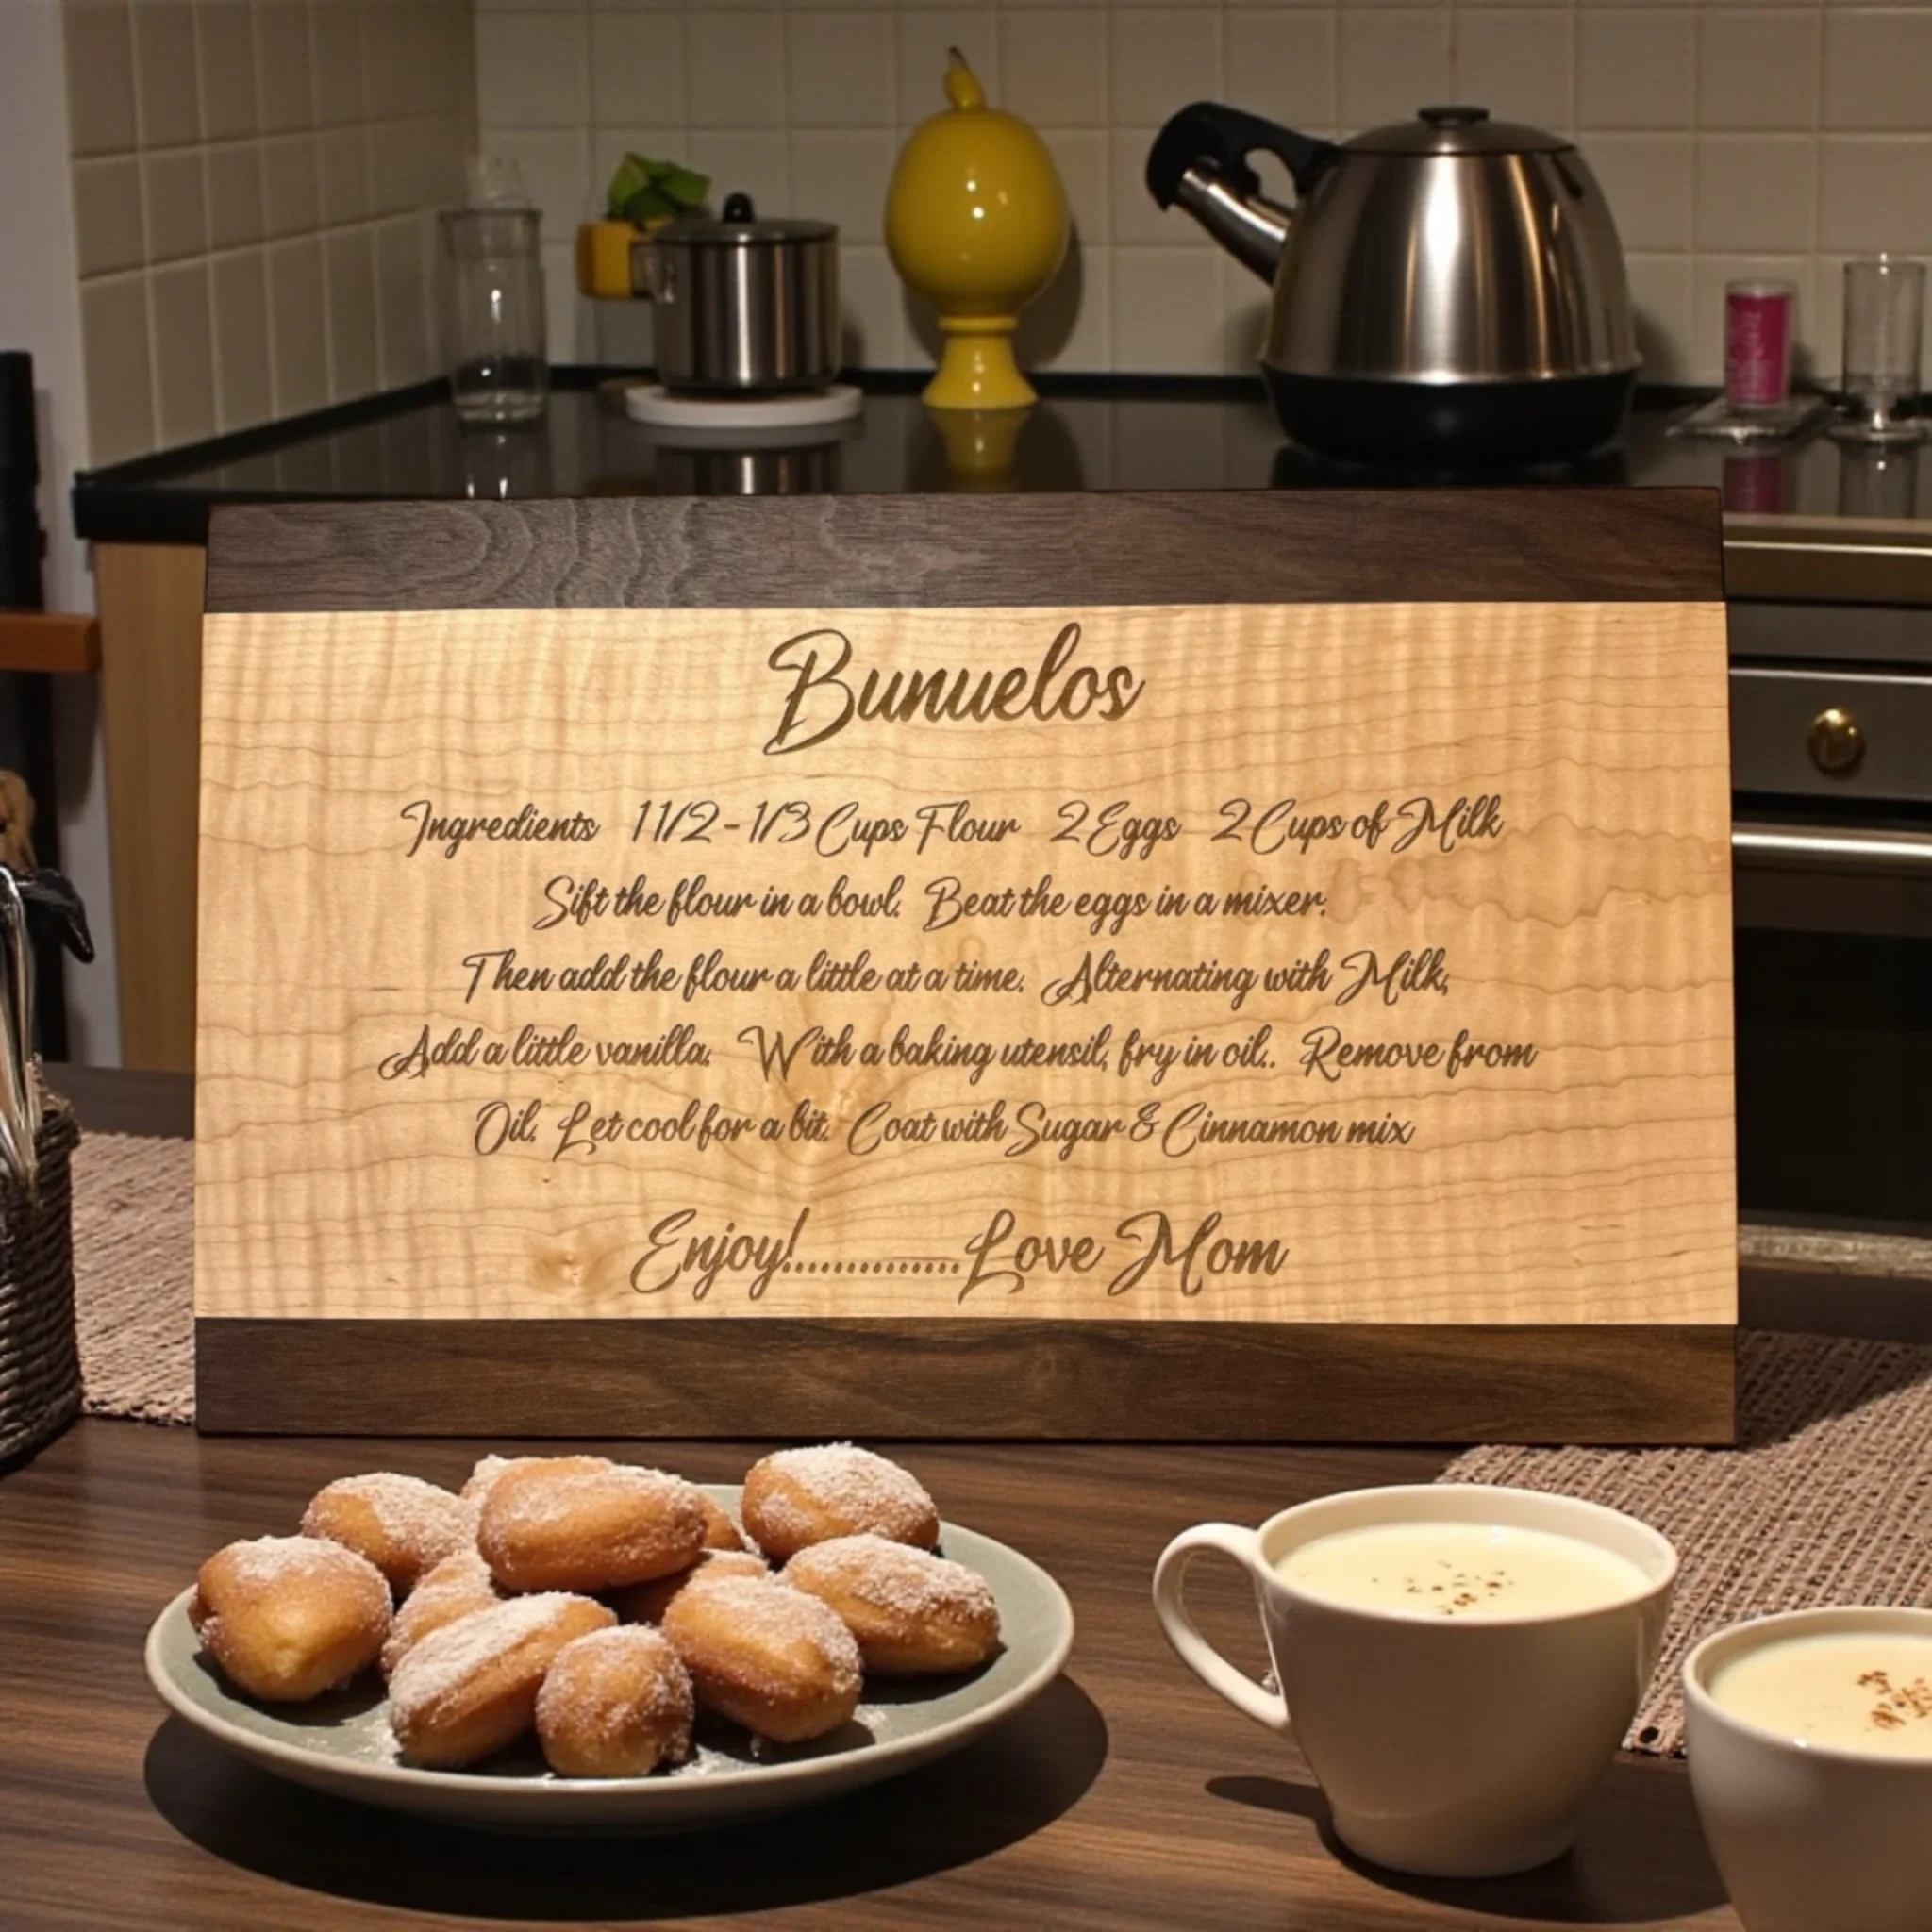 Bunuelos
Ingredients 1 1/2 - 1/3 Cups Flour 2 Eggs 2 Cups of Milk
Sift the flour in a bowl. Beat the eggs in a mixer.
Then add the flour a little at a time. Alternating with Milk,
Add a little vanilla. With a baking utensil, fry in oil.. Remove from
Oil. Let cool for a bit. Coat with Sugar & Cinnamon mix
Enjoy!..............Love Mom